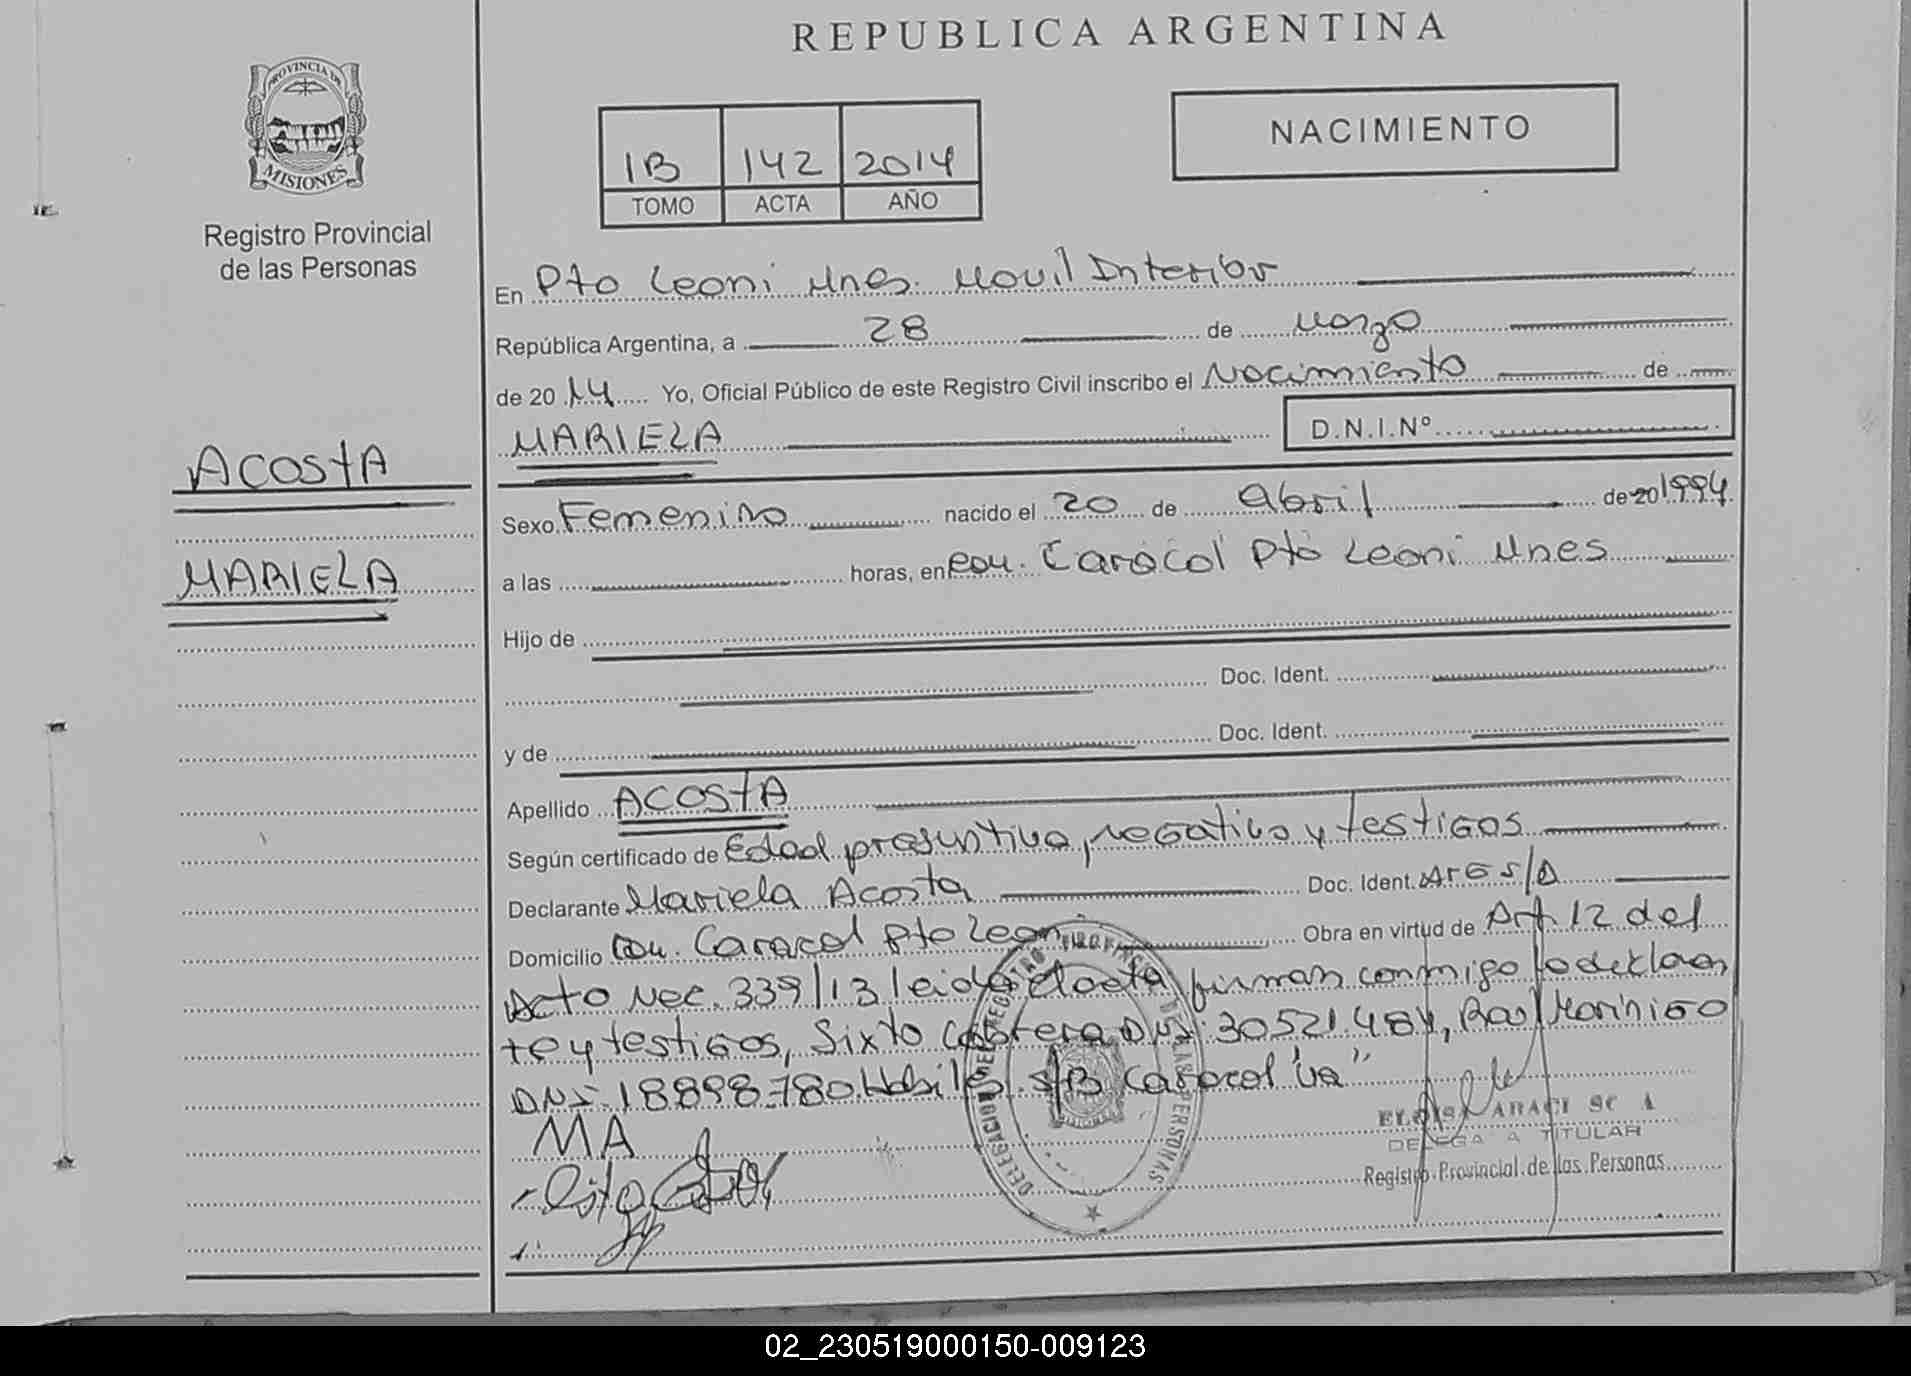 REPUBLICA ARGENTINA
PROVINCIA DE
MISIONES
Registro Provincial
de las Personas
NACIMIENTO
1B 142 2014
TOMO ACTA AÑO
En Pto Leoni Mnes. Movil Interior
República Argentina, a 28 de Marzo
de 2014 Yo, Oficial Público de este Registro Civil inscribo el Nacimiento de
MARIELA D.N.I.Nº
ACOSTA
MARIELA
Sexo Femenino nacido el 20 de Abril de 20 1994
a las horas, en Com. Caracol Pto Leoni Mnes
Hijo de
Doc. Ident.
y de Doc. Ident.
Apellido ACOSTA
Según certificado de Edad presuntiva, negativo y testigos
Declarante Mariela Acosta Doc. Ident.
Domicilio Com. Caracol Pto Leoni Obra en virtud de Art. 12 del
Acto Nec. 339/13 leida el acta firman conmigo la declaran
te y testigos, Sixto Cabrera DNI. 30521.484, Raul Morinigo
DNI. 18898.780. Habiles. S/B Caracol "va"
MA
DELEGACION DEL REGISTRO PROVINCIAL DE LAS PERSONAS
TITULAR
Registro Provincial de las Personas
02_230519000150-009123